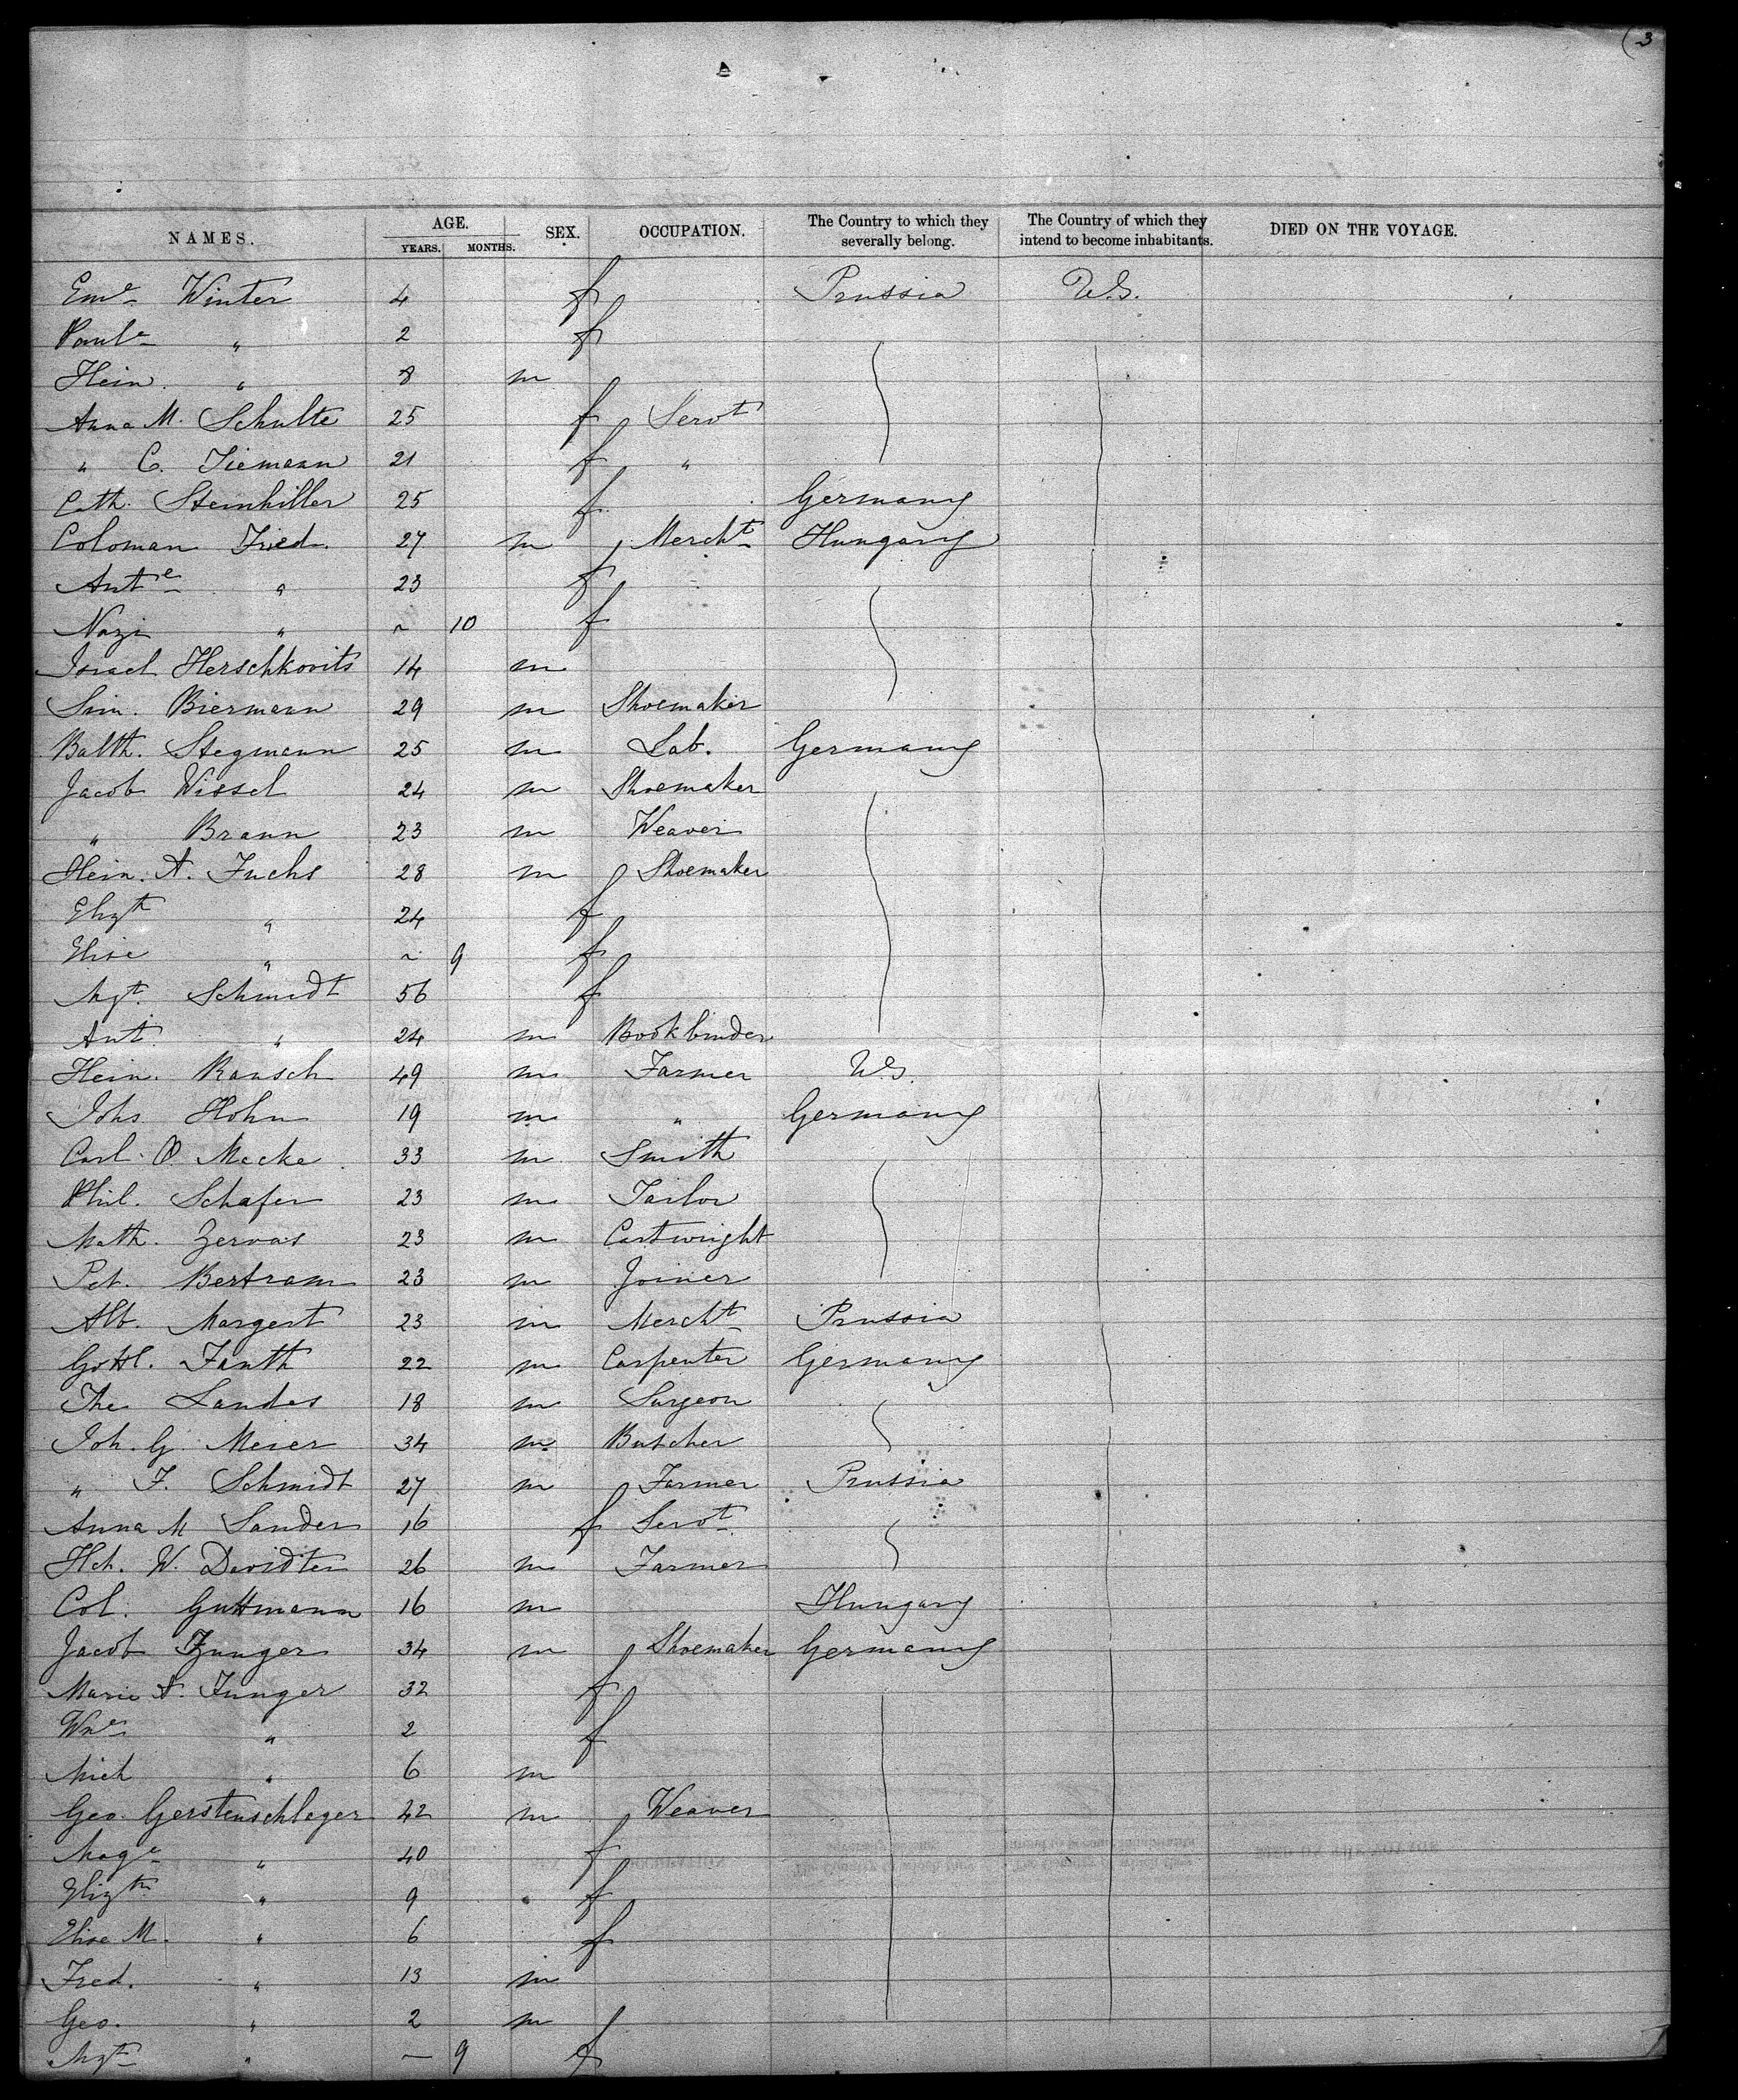 (3
NAMES. AGE. YEARS. MONTHS. SEX. OCCUPATION. The Country to which they severally belong. The Country of which they intend to become inhabitants. DIED ON THE VOYAGE.
Eme Winter 4 f Prussia U.S.
Paule " 2 f
Hein. " 8 m
Anna M. Schulte 25 f Servt
" C. Tiemann 21 f "
Cath. Steinhiller 25 f Germany
Coloman Fried. 27 m Mercht Hungary
Ante " 23 f
Nazi " ~ 10 f
Israel Herschkovits 14 m
Sim. Biermann 29 m Shoemaker
Balth. Stegmann 25 m Lab. Germany
Jacob Wissel 24 m Shoemaker
" Braun 23 m Weaver
Hein. A. Fuchs 28 m Shoemaker
Elizth " 24 f
Elise " ~ 9 f
Mgt. Schmidt 56 f
Ant. " 24 m Bookbinder
Hein. Rausch 49 m Farmer U.S.
Johs. Hohn 19 m " Germany
Carl O. Macke 33 m Smith
Phil. Schafer 23 m Tailor
Math. Zervas 23 m Cartwright
Pet. Bertram 23 m Joiner
Alb. Margert 23 m Mercht Prussia
Gottl. Fauth 22 m Carpenter Germany
The Landes 18 m Surgeon
Joh. G. Meier 34 m Butcher
" F. Schmidt 27 m Farmer Prussia
Anna M Sander 16 f Servt
Hch. W. Davidter 26 m Farmer
Col. Guttmann 16 m Hungary
Jacob Zunger 34 m Shoemaker Germany
Marie A. Junger 32 f
Wne " 2 f
Mich " 6 m
Geo. Gerstenschlager 42 m Weaver
Mage " 40 f
Elizth " 9 f
Elise M. " 6 f
Fred. " 13 m
Geo. " 2 m
Mgt " — 9 f